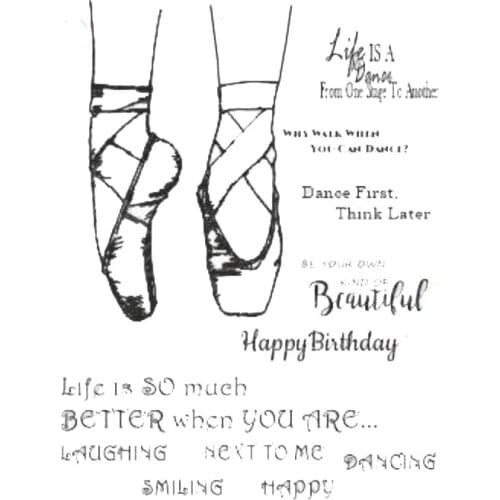 Life IS A
Dance
From One Stage To Another
WHY WALK WHEN
YOU CAN DANCE?
Dance First,
Think Later
BE YOUR OWN
KIND OF
Beautiful
Happy Birthday
Life is SO much
BETTER when YOU ARE...
LAUGHING NEXT TO ME DANCING
SMILING HAPPY